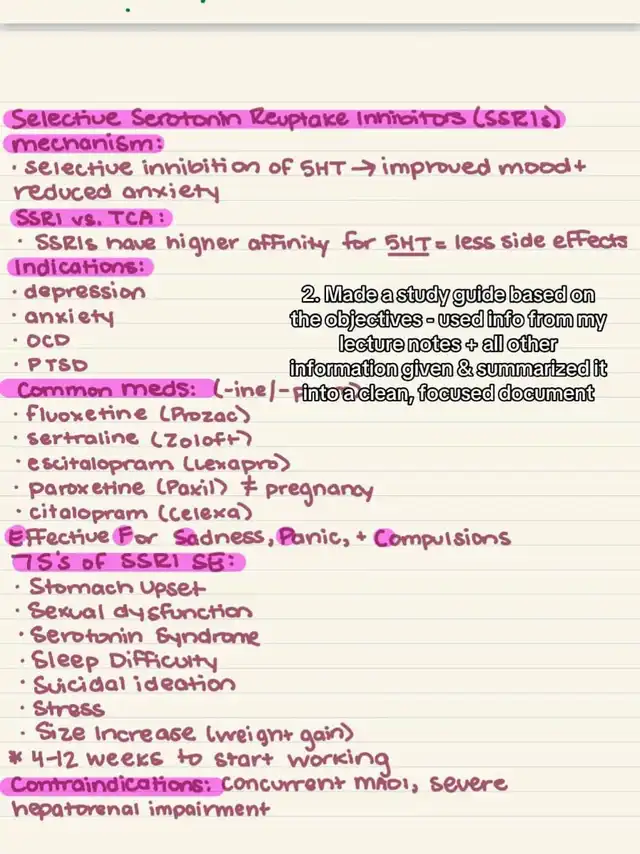 Selective Serotonin Reuptake Inhibitors (SSRIs)
mechanism:
· selective inhibition of 5HT → improved mood +
reduced anxiety
SSRI vs. TCA:
· SSRIs have higher affinity for 5HT = less side effects
Indications:
· depression
· anxiety
· OCD
· PTSD
2. Made a study guide based on
the objectives - used info from my
lecture notes + all other
information given & summarized it
into a clean, focused document
Common meds: (-ine/-
· fluoxetine (Prozac)
· sertraline (Zoloft)
· escitalopram (Lexapro)
· paroxetine (Paxil) ≠ pregnancy
· citalopram (Celexa)
Effective For Sadness, Panic, + Compulsions
7 S's of SSRI SE:
· Stomach Upset
· Sexual dysfunction
· Serotonin Syndrome
· Sleep Difficulty
· Suicidal ideation
· Stress
· Size Increase (weight gain)
* 4-12 weeks to start working
Contraindications: Concurrent MAOI, severe
hepatorenal impairment